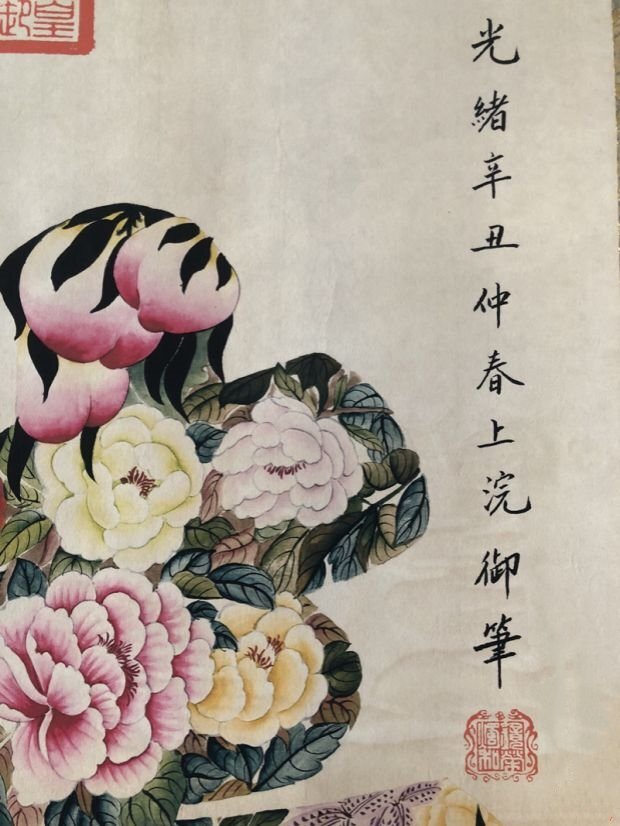 光緒辛丑仲春上浣御筆